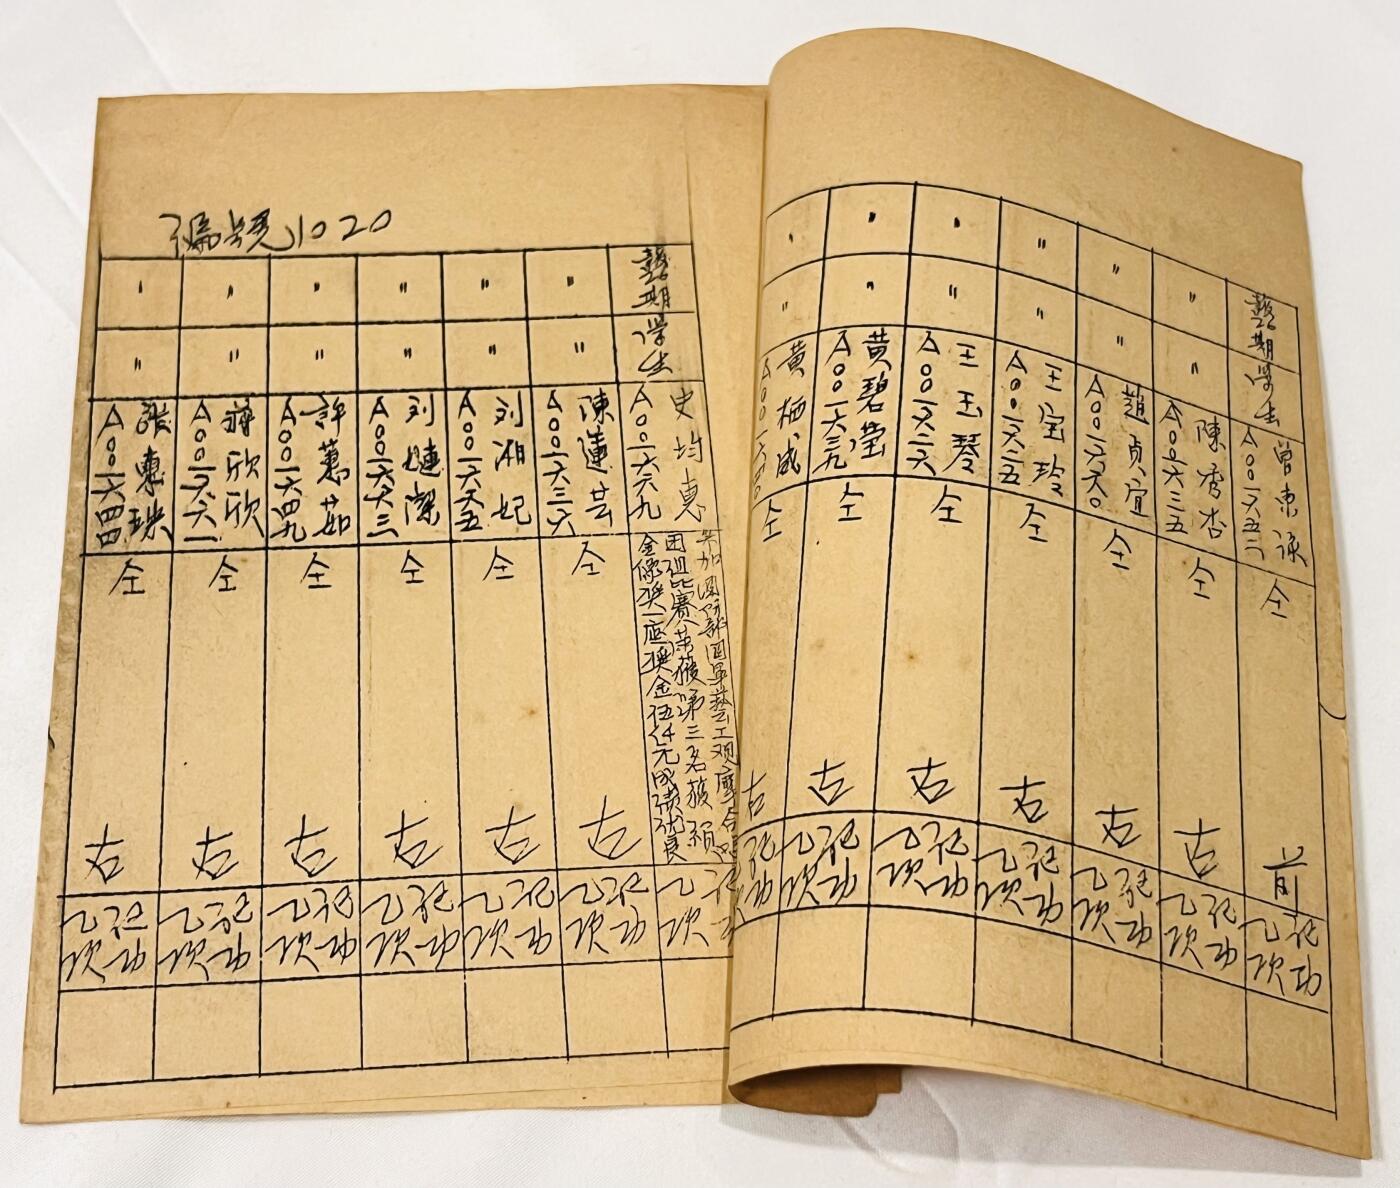 藝二期
学生
曾東詠
A〇〇一六五二
仝
前
記功
乙次
〃
〃
陳秀杏
A〇〇一六三五
仝
右
記功
乙次
〃
〃
趙貞宜
A〇〇一六六〇
仝
右
記功
乙次
〃
〃
王宝玲
A〇〇一六二五
仝
右
記功
乙次
〃
〃
王玉琴
A〇〇一六二六
仝
右
記功
乙次
〃
〃
黃碧瑩
A〇〇一六三九
仝
右
記功
乙次
〃
〃
黃栖咸
仝
右
記功
編號1020
藝二期
学生
史均惠
A〇〇一六六九
參加國防部國軍藝工观摩合唱
团组比賽荣獲第三名獲頒
金像奬一座奬金伍仟元成績优良
記功
乙次
〃
〃
陳蓮芸
A〇〇一六三六
仝
右
記功
乙次
〃
〃
刘湘妃
A〇〇一六五五
仝
右
記功
乙次
〃
〃
刘嫥潔
A〇〇一六六三
仝
右
記功
乙次
〃
〃
許蕙茹
A〇〇一六四九
仝
右
記功
乙次
〃
〃
蒋欣欣
A〇〇一六六一
仝
右
記功
乙次
〃
〃
張惠珠
A〇〇一六四四
仝
右
記功
乙次